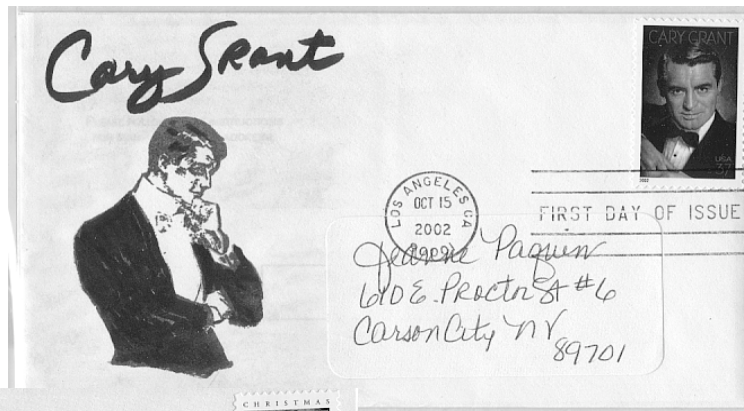 Cary Grant
CARY GRANT
USA
37
2002
LOS ANGELES CA
OCT 15
2002
FIRST DAY OF ISSUE
Jeanne Paquin
610 E. Proctor St #6
Carson City NV
89701
CHRISTMAS